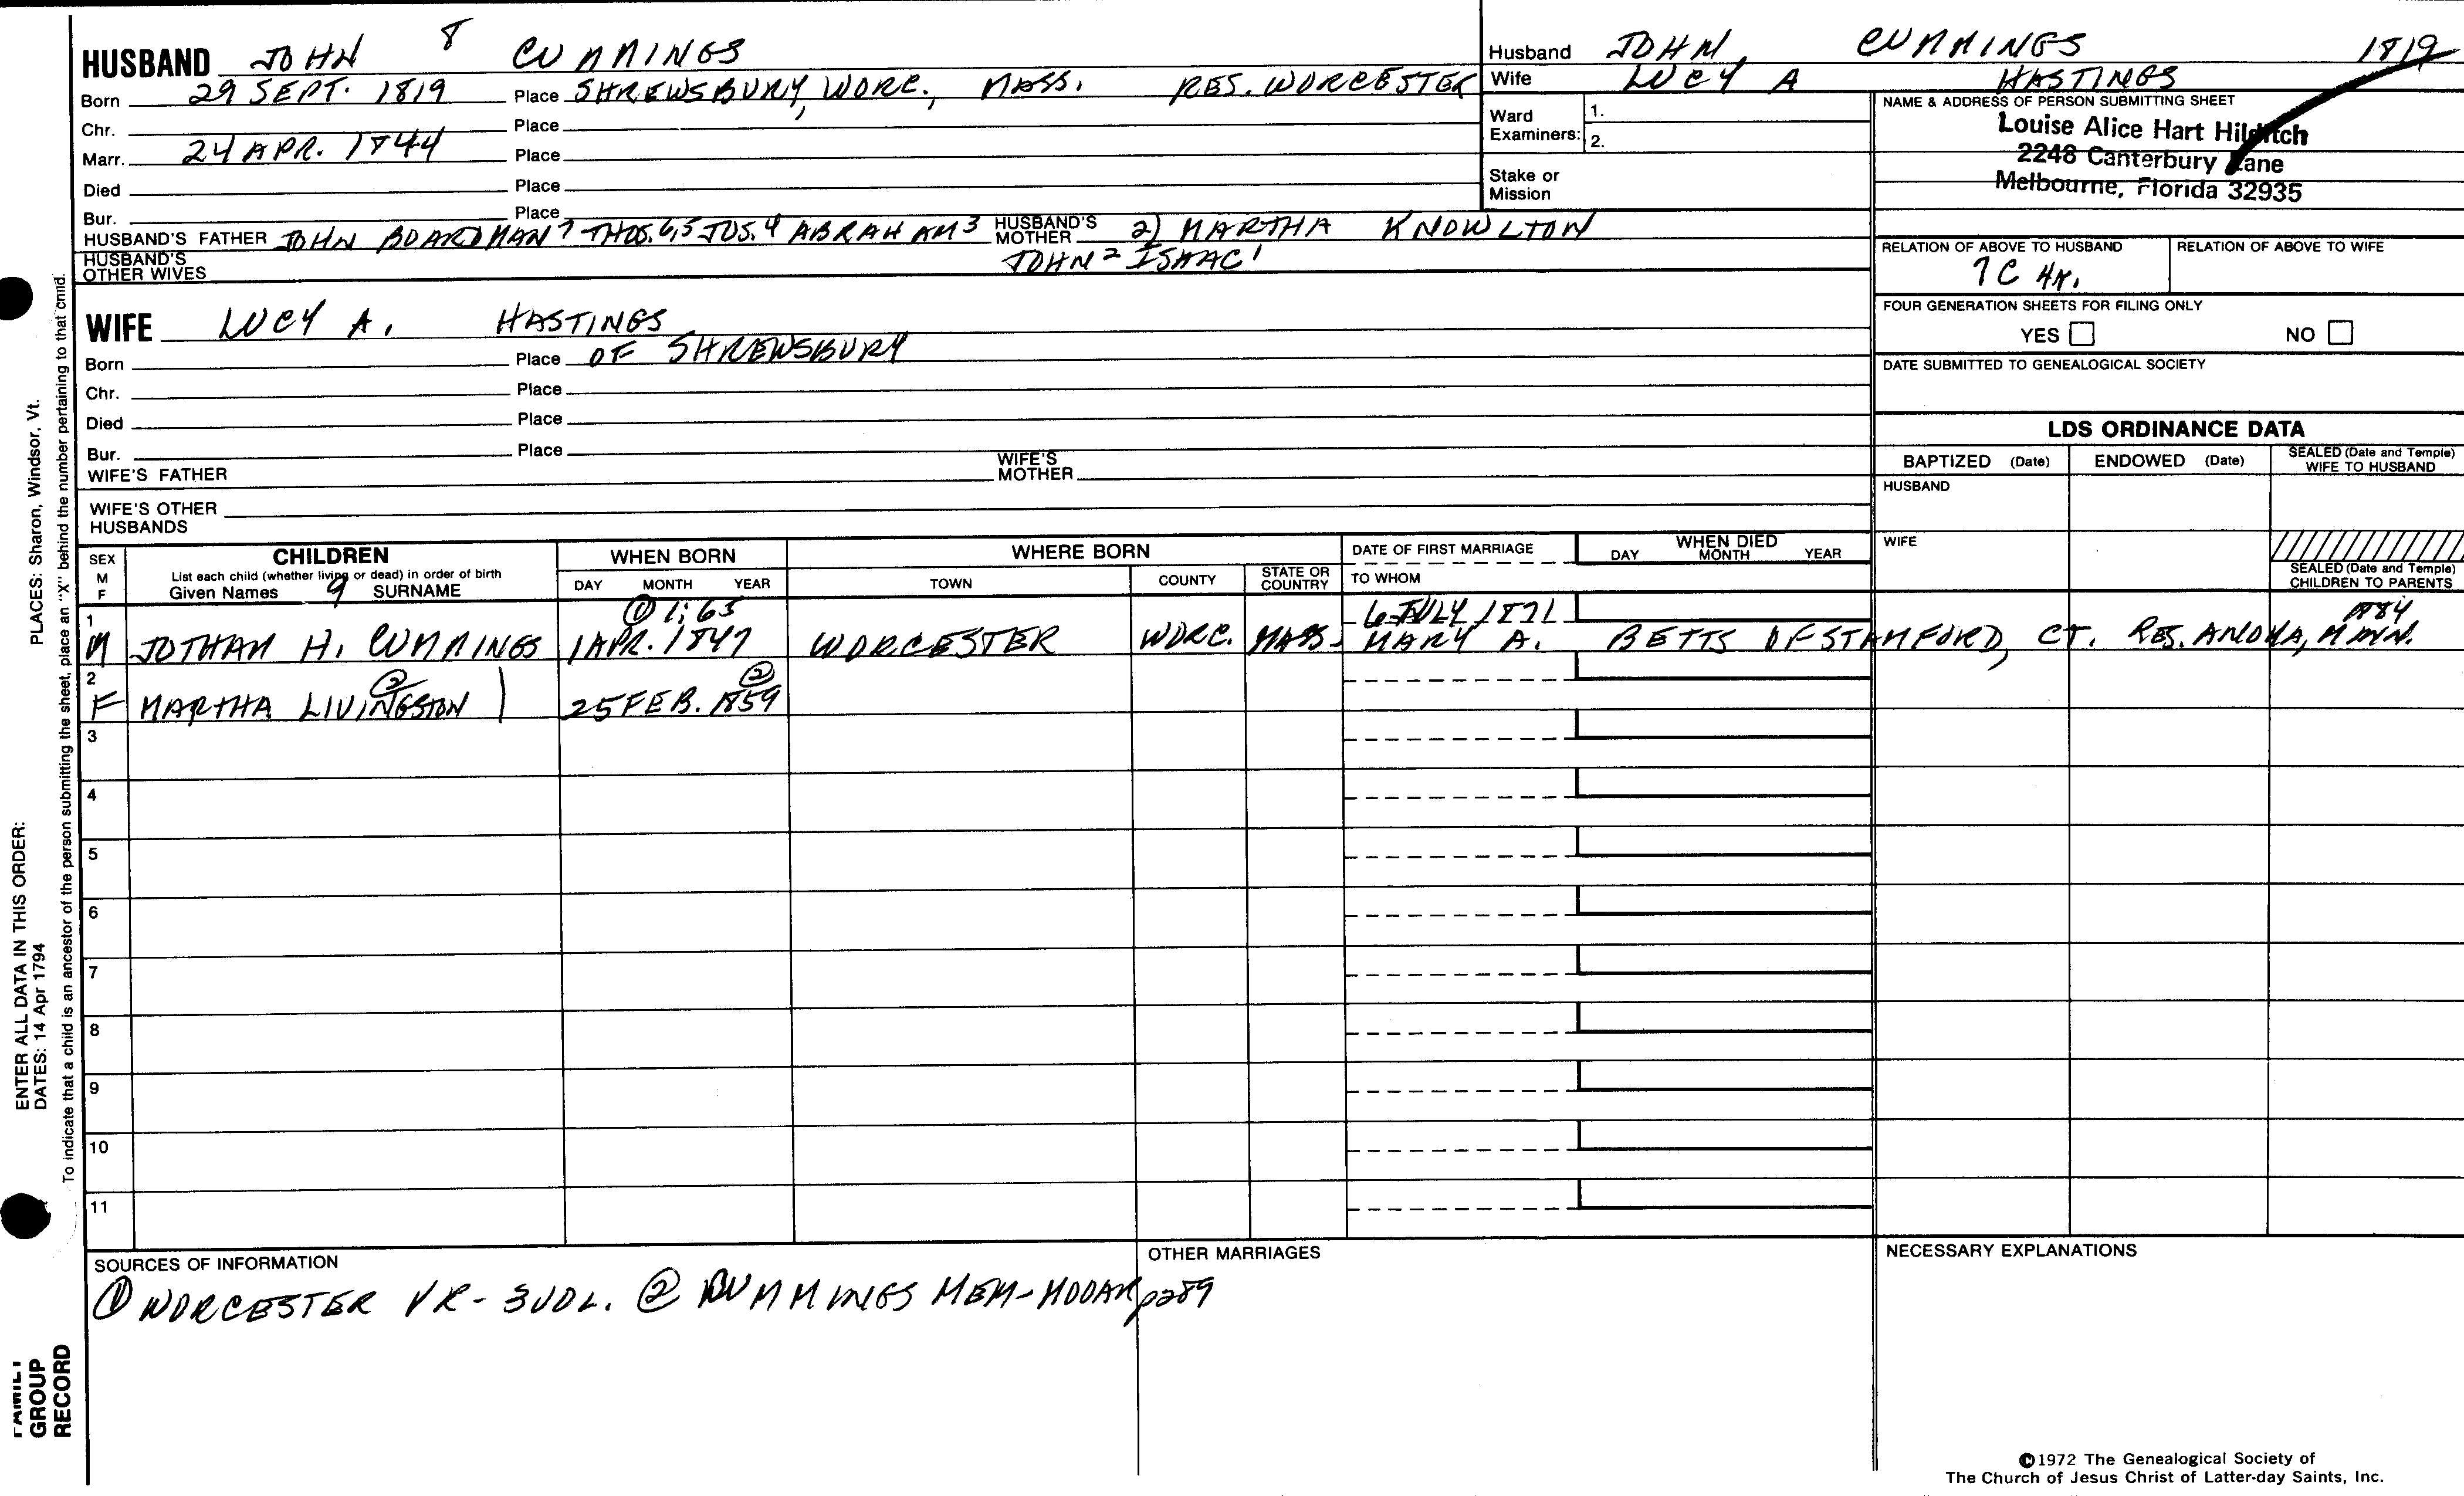 HUSBAND JOHN 8 CUMMINGS
Born 29 SEPT. 1819 Place SHREWSBURY, WORC., MASS. RES. WORCESTER
Chr. Place
Marr. 24 APR. 1844 Place
Died Place
Bur. Place
HUSBAND'S FATHER JOHN BOARDMAN 7 THOS. 6,5 JOS. 4 ABRAHAM 3 HUSBAND'S MOTHER 2) MARTHA KNOWLTON
HUSBAND'S OTHER WIVES JOHN 2 ISAAC 1
WIFE LUCY A. HASTINGS
Born Place OF SHREWSBURY
Chr. Place
Died Place
Bur. Place
WIFE'S FATHER WIFE'S MOTHER
WIFE'S OTHER HUSBANDS
Husband JOHN CUMMINGS 1819
Wife LUCY A HASTINGS
Ward Examiners: 1.
2.
Stake or Mission
NAME & ADDRESS OF PERSON SUBMITTING SHEET
Louise Alice Hart Hilditch
2248 Canterbury Lane
Melbourne, Florida 32935
RELATION OF ABOVE TO HUSBAND RELATION OF ABOVE TO WIFE
7C 4R.
FOUR GENERATION SHEETS FOR FILING ONLY
YES NO
DATE SUBMITTED TO GENEALOGICAL SOCIETY
LDS ORDINANCE DATA
BAPTIZED (Date) ENDOWED (Date) SEALED (Date and Temple) WIFE TO HUSBAND
HUSBAND
WIFE
SEALED (Date and Temple) CHILDREN TO PARENTS
SEX M F
CHILDREN
List each child (whether living or dead) in order of birth
Given Names 9 SURNAME
WHEN BORN
DAY MONTH YEAR
WHERE BORN
TOWN COUNTY STATE OR COUNTRY
DATE OF FIRST MARRIAGE
TO WHOM
WHEN DIED
DAY MONTH YEAR
1 ① 1:63 6 JULY 1871 1884
M JOTHAM H. CUMMINGS 1 APR. 1847 WORCESTER WORC. MASS. MARY A. BETTS OF STAMFORD, CT. RES. ANOKA, MINN.
2 ② ②
F MARTHA LIVINGSTON 25 FEB. 1859
3
4
5
6
7
8
9
10
11
SOURCES OF INFORMATION
① WORCESTER VR - 3VOL. ② CUMMINGS MEM - MOOAR p289
OTHER MARRIAGES
NECESSARY EXPLANATIONS
©1972 The Genealogical Society of
The Church of Jesus Christ of Latter-day Saints, Inc.
ENTER ALL DATA IN THIS ORDER:
DATES: 14 Apr 1794 PLACES: Sharon, Windsor, Vt.
To indicate that a child is an ancestor of the person submitting the sheet, place an "X" behind the number pertaining to that child.
FAMILY
GROUP
RECORD